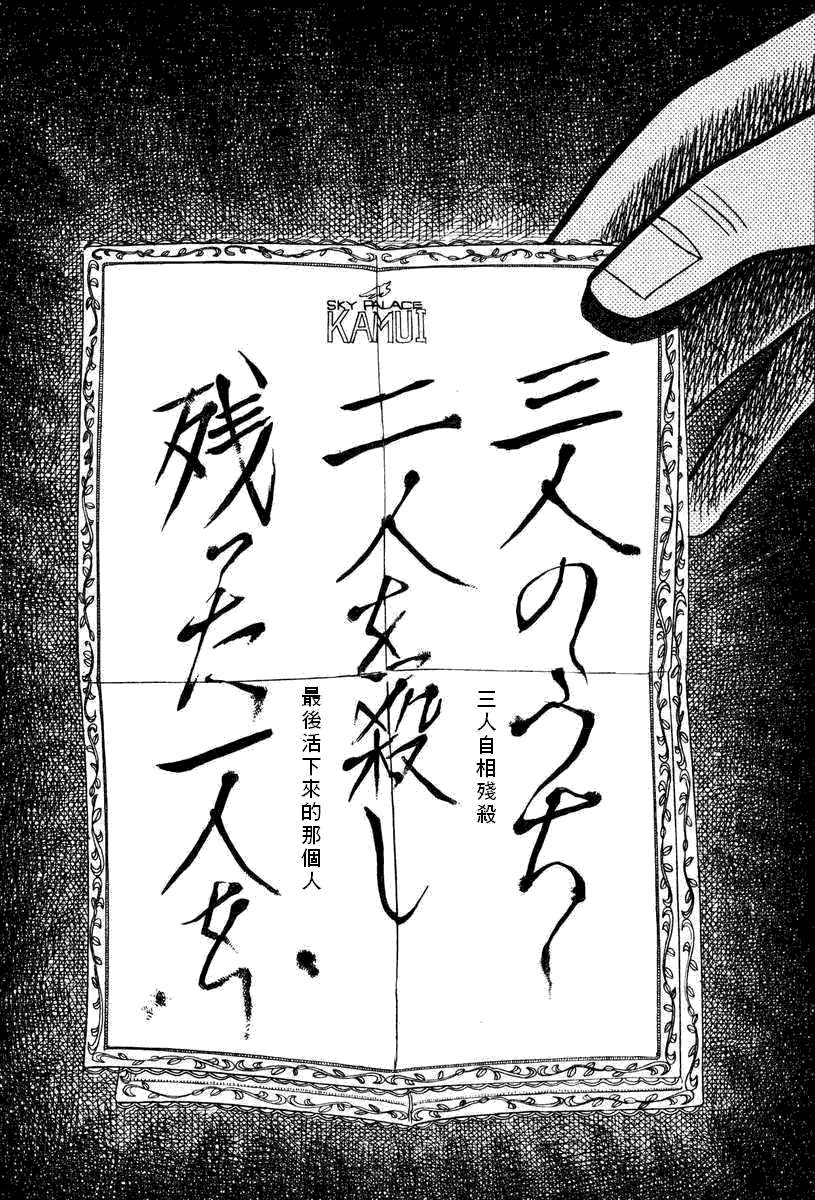 SKY PALACE
KAMUI
三人のうち
三人自相殘殺
二人を殺し
最後活下來的那個人
残った一人を